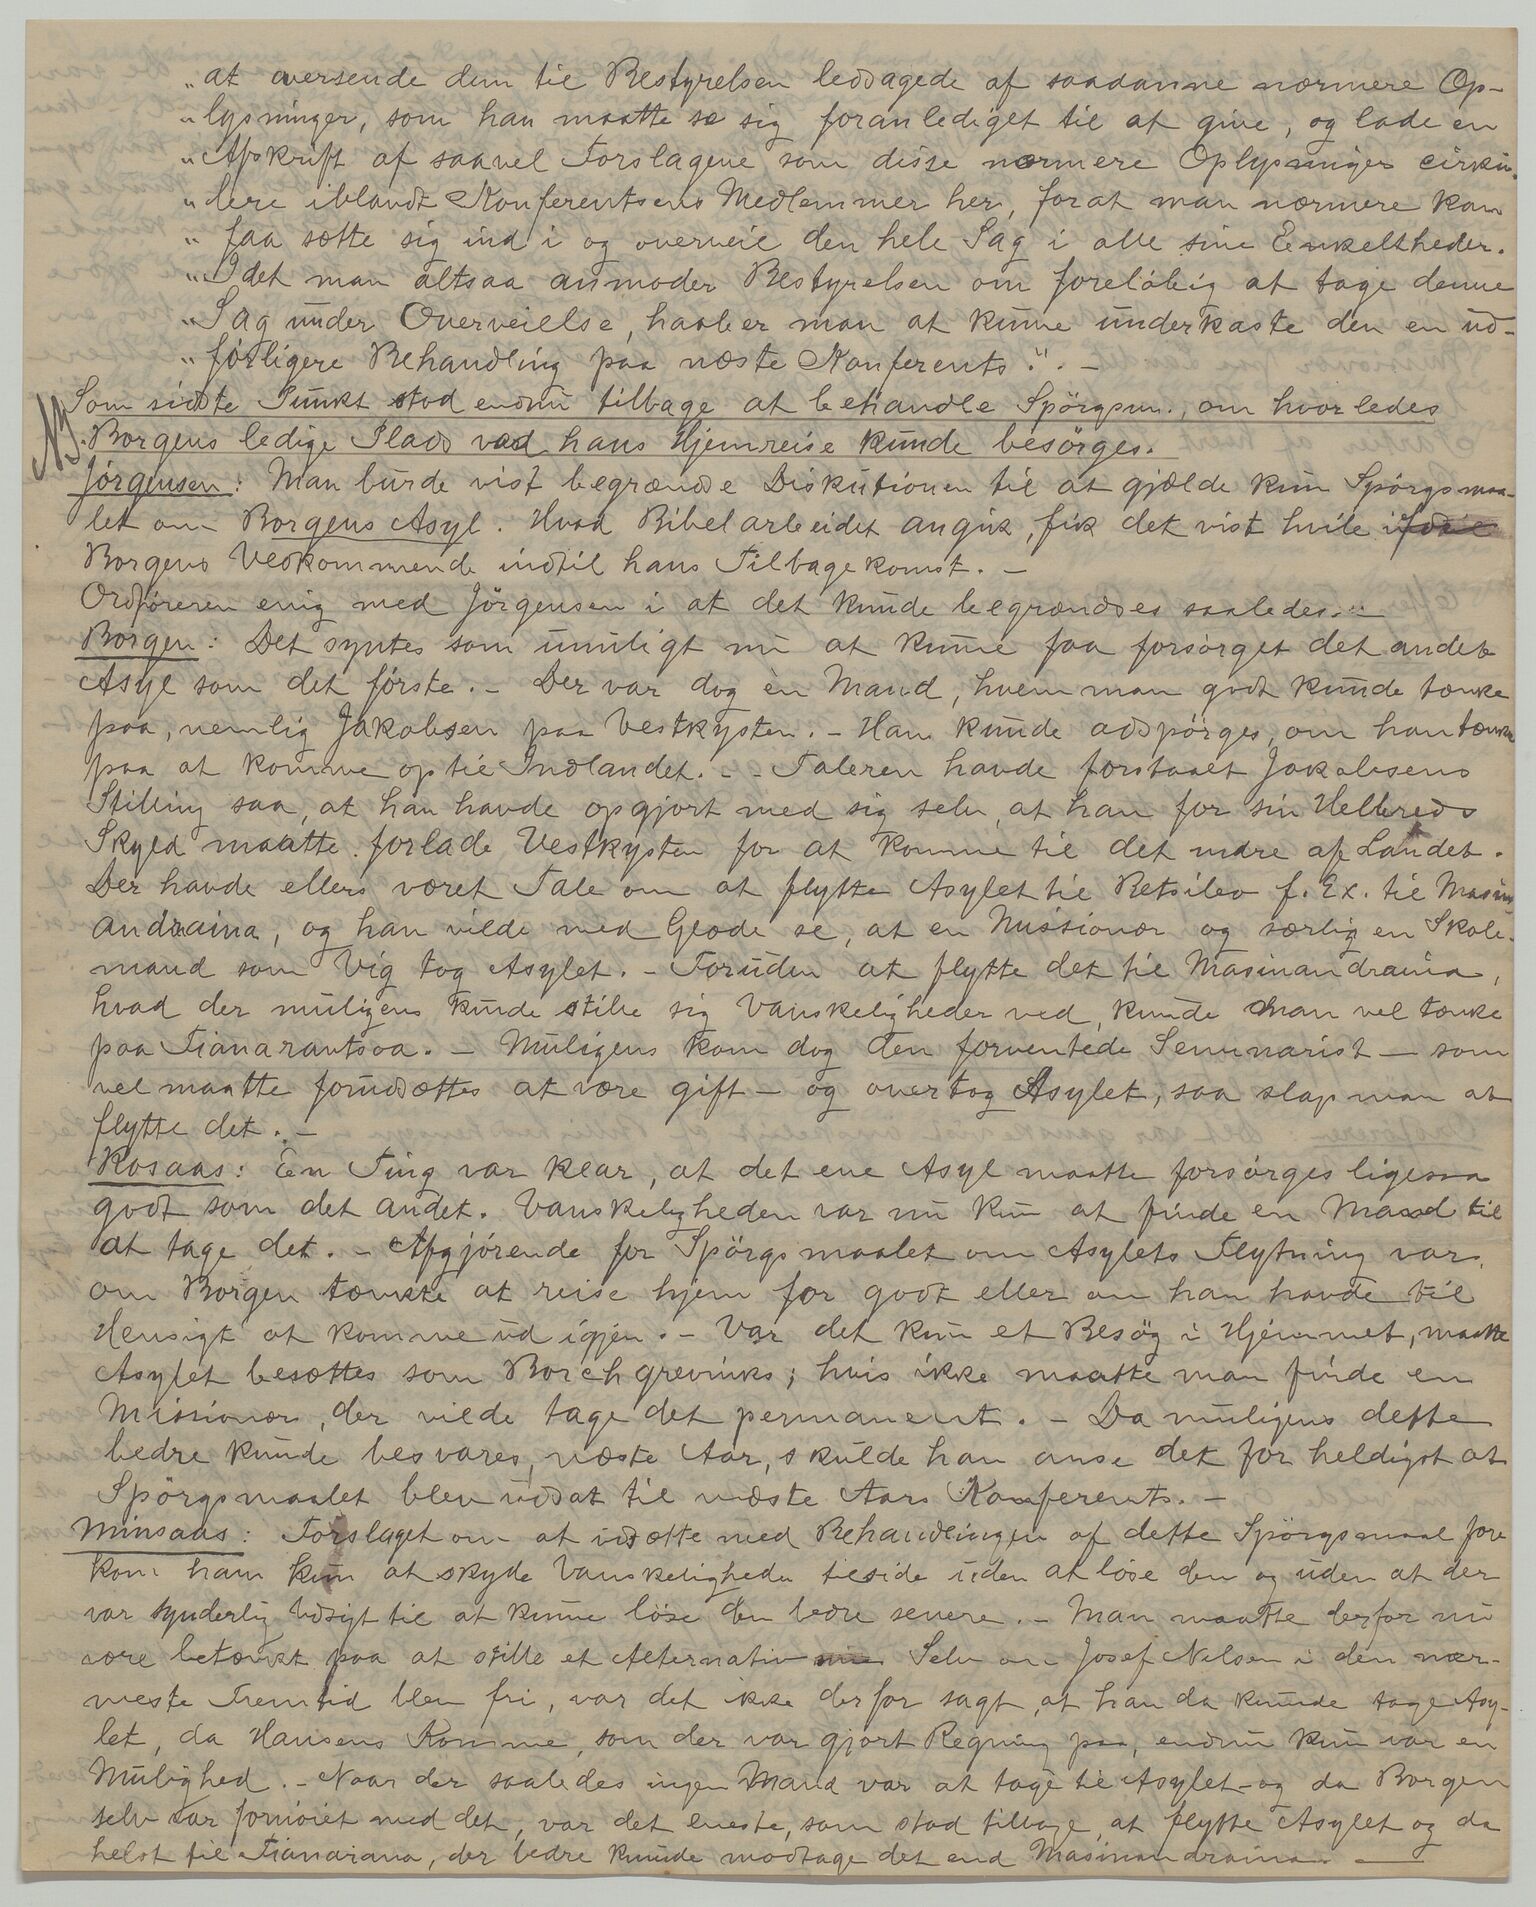 „at oversende dem til Bestyrelsen leddsagede af saadanne nærmere Op-
„lysninger, som han maatte se sig foranlediget til at give, og lade en
„Afskrift af saavel Forslagene som disse nærmere Oplysninger cirku-
„lere iblandt Konferentsens Medlemmer her, forat man nærmere kan
„faa sætte sig ind i og overveie den hele Sag i alle sine Enkeltheder.
„Idet man altsaa anmoder Bestyrelsen om foreløbig at tage denne
„Sag under Overveielse, haaber man at kunne underkaste den en ud-
„førligere Behandling paa næste Konferents.". -
Som sidste Punkt stod endnu tilbage at behandle Spørgsm., om hvorledes
Borgens ledige Plads ved hans Hjemreise kunde besørges.
Jørgensen: Man burde vist begrændse Diskutionen til at gjælde kun Spørgsmaa-
let om Borgens Asyl. Hvad Bibelarbeidet angik, fik det vist hvile
Borgens Vedkommende indtil hans Tilbagekomst. -
Ordføreren enig med Jørgensen i at det kunde begrændses saaledes. -
Borgen: Det syntes som umuligt nu at kunne faa forsørget det andet
Asyl som det første. - Der var dog èn Mand, hvem man godt kunde tænke
paa, nemlig Jakobsen paa Vestkysten. - Han kunde adspørges, om han tænkte
paa at komme op til Indlandet. - - Taleren havde forstaaet Jakobsens
Stilling saa, at han havde opgjort med sig selv, at han for sin Helbreds
Skyld maatte forlade Vestkysten for at komme til det indre af Landet.
Der havde ellers været Tale om at flytte Asylet til Betsileo f. Ex. til Masin
andraina, og han vilde med Glæde se, at en Missionær og særlig en Skole-
mand som Vig tog Asylet. - Foruden at flytte det til Masinandraina,
hvad der muligens kunde stille sig Vanskeligheder ved, kunde man vel tænke
paa Fianarantsoa. - Muligens kom dog den forventede Seminarist - som
vel maatte forudsættes at være gift - og overtog Asylet, saa slap man at
flytte det. -
Rosaas: Èn Ting var klar, at det ene Asyl maatte forsørges ligesaa
godt som det andet. Vanskeligheden var nu kun at finde en Mand til
at tage det. - Afgjørende for Spørgsmaalet om Asylets Flytning var,
om Borgen tænkte at reise hjem for godt eller om han havde til
Hensigt at komme ud igjen. - Var det kun et Besøg i Hjemmet, maatte
Asylet besættes som Borchgrevinks; hvis ikke maatte man finde en
Missionær, der vilde tage det permanent. - Da muligens dette
bedre kunde besvares, næste Aar, skulde han anse det for heldigst at
Spørgsmaalet blev udsat til næste Aars Konferents. -
Minsaas: Forslaget om at udsætte med Behandlingen af dette Spørgsmaal fore
kom ham kun at skyde Vanskeligheden tilside uden at løse den og uden at der
var synderlig Udsigt til at kunne løse den bedre senere. - Man maatte derfor nu
være betænkt paa at stille et Alternativ Selv om Josef Nilsen i den nær-
meste Fremtid blev fri, var det ikke derfor sagt, at han da kunde tage Asy-
let, da Hansens Komme, som der var gjort Regning paa, endnu kun var en
Mulighed. - Naar der saaledes ingen Mand var at tage til Asylet - og da Borgen
selv var fornøiet med det, var det eneste, som stod tilbage, at flytte Asylet og da
helst til Fianarana, der bedre kunde modtage det end Masinandraina. -